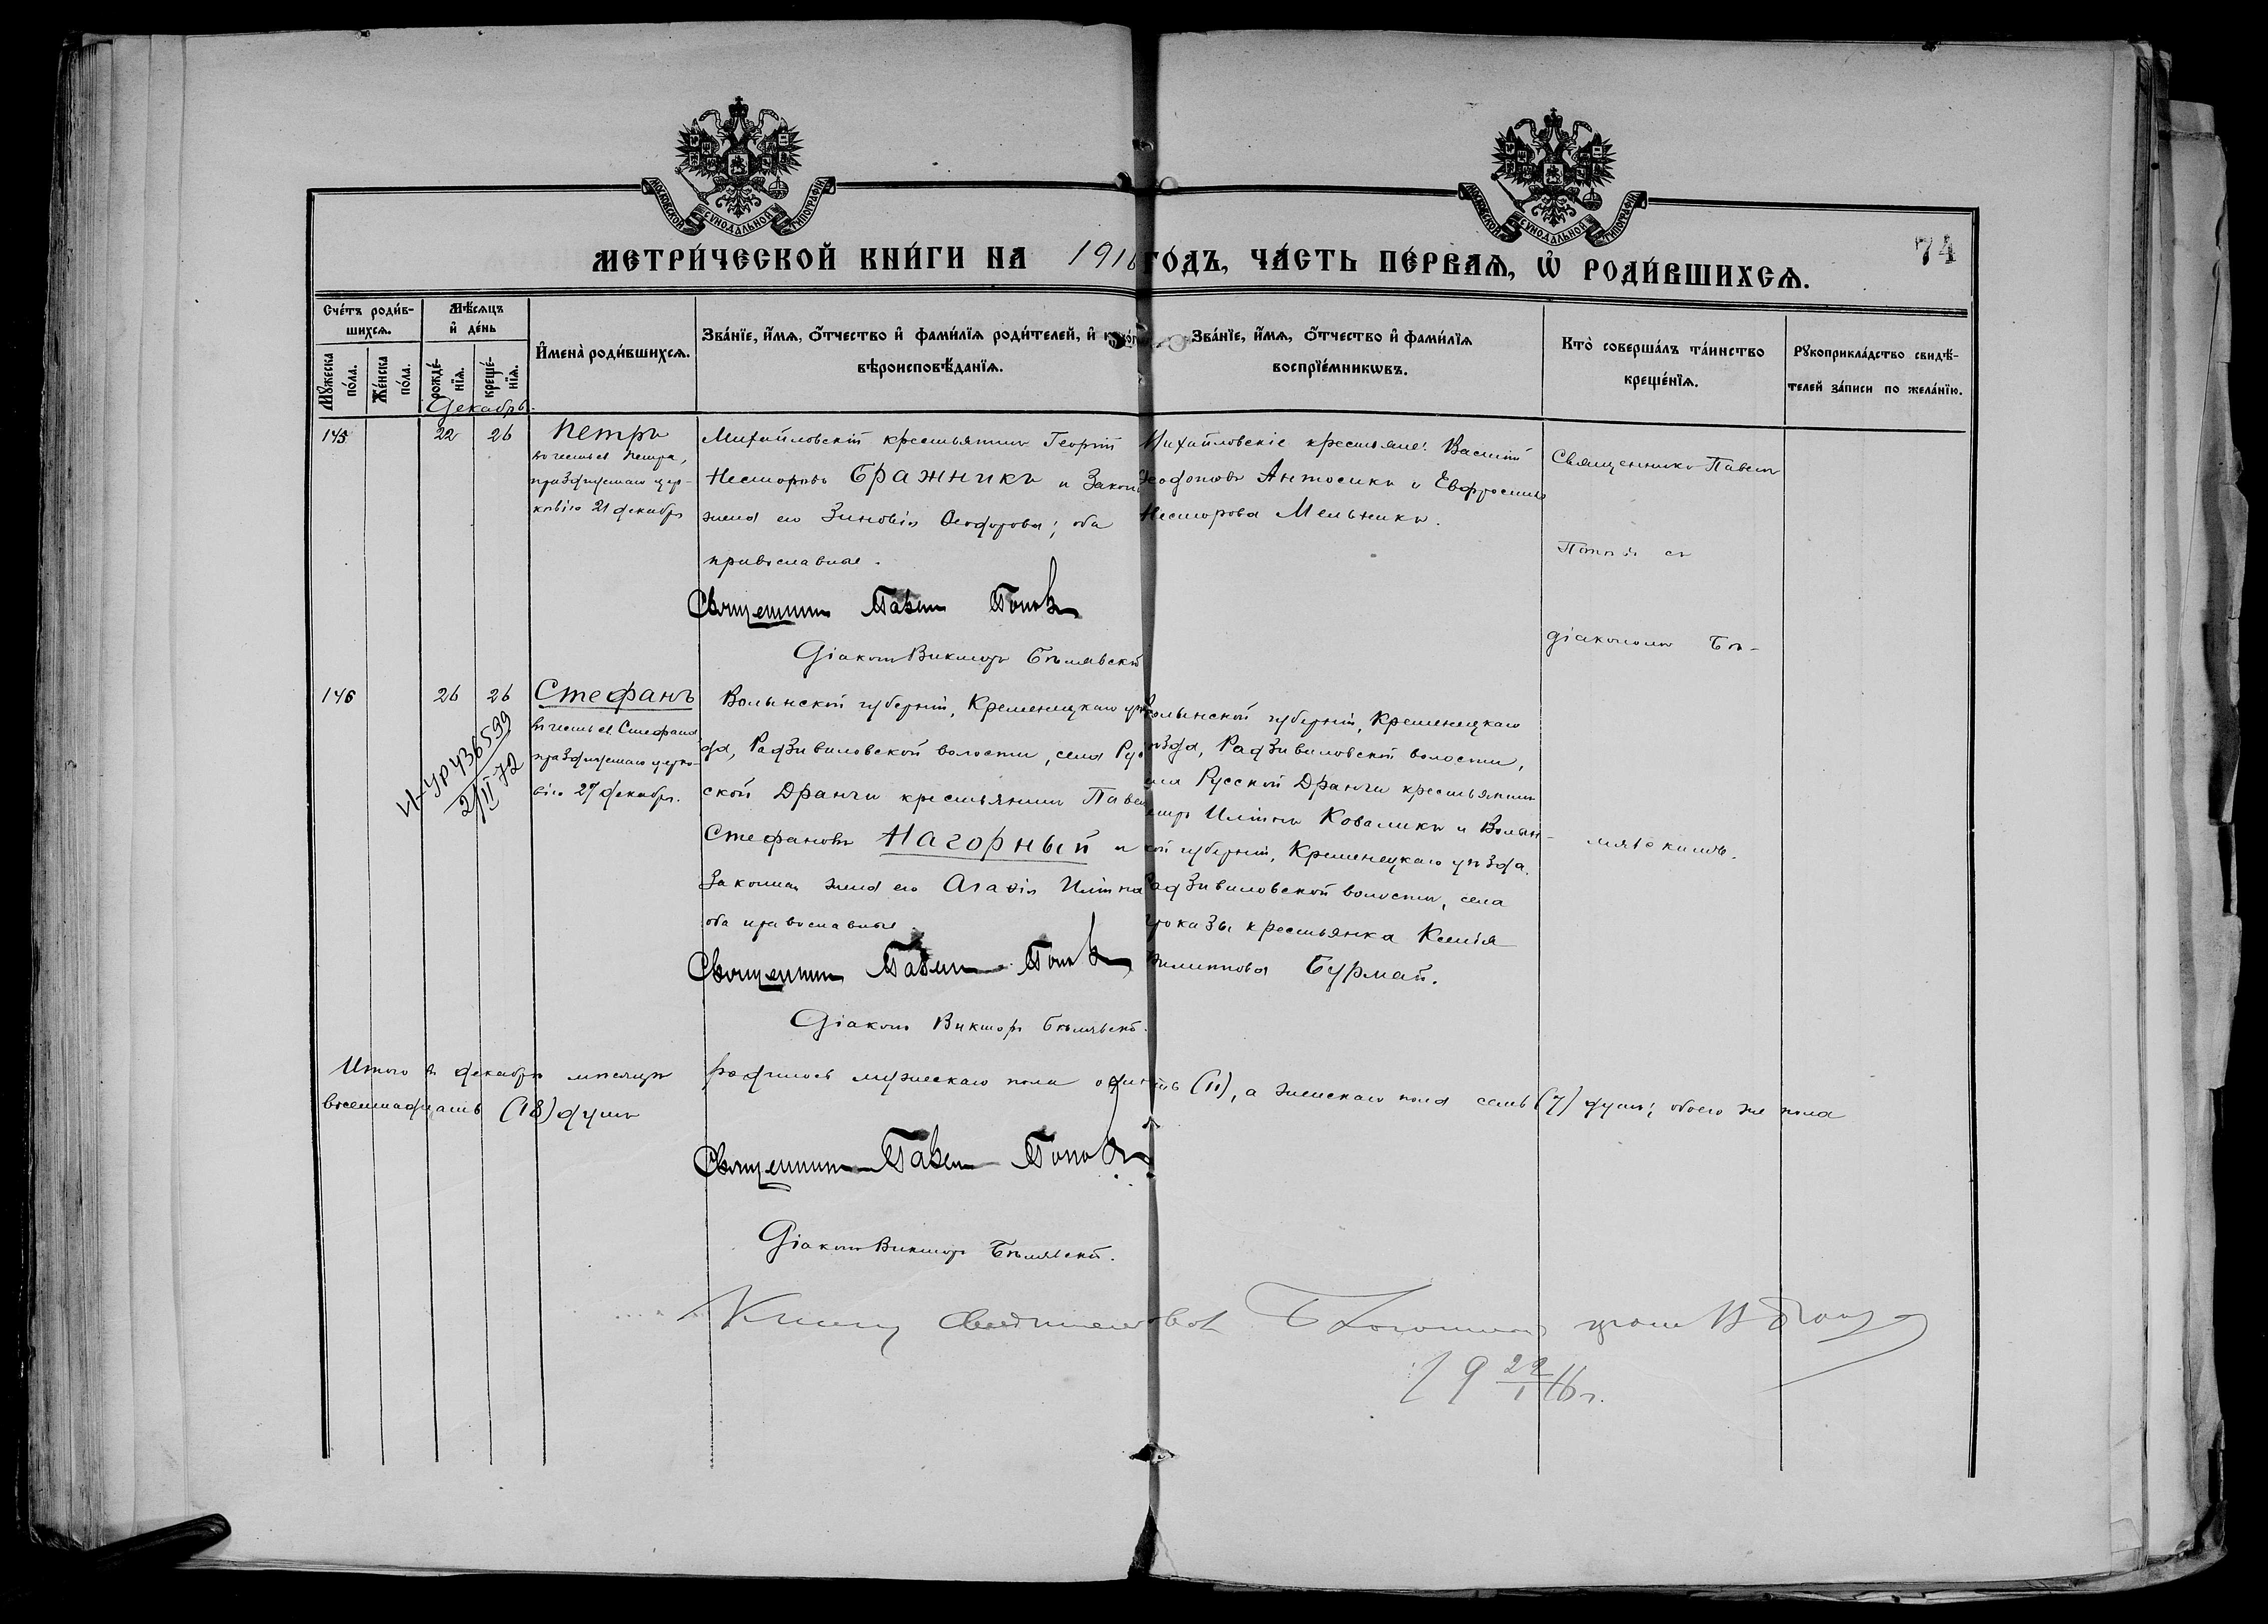 МОСКОВСКОЙ СѴНОДАЛЬНОЙ ТИПОГРАФІИ
МОСКОВСКОЙ СѴНОДАЛЬНОЙ ТИПОГРАФІИ
МЕТРИ́ЧЕСКОЙ КНИ́ГИ НА 1916 ГО́ДЪ, ЧА́СТЬ ПЕ́РВАѦ, Ѡ҆ РОДИ́ВШИХСѦ.
74
Сче́тъ роди́в-
шихсѧ.
Мꙋ́жеска по́ла.
Же́нска по́ла.
Мѣ́сѧцъ
и҆ де́нь
рожде́-
нїѧ.
креще́-
нїѧ.
И҆мена̀ роди́вшихсѧ.
Зва́нїе, и҆́мѧ, ѻ҆́тчество и҆ фами́лїѧ роди́телей, и҆
вѣроисповѣ́данїѧ.
Зва́нїе, и҆́мѧ, ѻ҆́тчество и҆ фами́лїѧ
воспрїе́мникѡвъ.
Кто̀ соверша́лъ та́инство
креще́нїѧ.
Рꙋкоприкла́дство свидѣ́-
телей за́писи по жела́нїю.
Декабрь.
145 22 26
Петръ
въ честь св. Петра,
празднуемаго цер-
ковію 21 декабря
Михайловскій крестьянинъ Георгій
Несторовъ Бражникъ и законная
жена его Зиновія Ѳеодорова; оба
православные.
Священникъ Павелъ Поповъ
Діаконъ Викторъ Бѣлявскій
Михайловскіе крестьяне: Василій
Ѳеодотовъ Антосикъ и Евфросинія
Несторова Мельникъ.
Священникъ Павелъ
Поповъ съ
діакономъ Бѣ-
лявскимъ.
146 26 26
И-УР 436599
2/II-72
Стефанъ
въ честь св. Стефана
празднуемаго церко-
вію 27 декабря.
Волынской губерніи, Кременецкаго уѣз-
да, Радзивиловской волости, села Рус-
ской Дранчи крестьянинъ Павелъ
Стефановъ Нагорный и
законная жена его Агафія Иліина
оба православные
Священникъ Павелъ Поповъ
Діаконъ Викторъ Бѣлявскій.
Волынской губерніи, Кременецкаго
уѣзда, Радзивиловской волости,
села Русской Дранчи крестьянинъ
Петръ Иліинъ Коваликъ и Волын-
ской губерніи, Кременецкаго уѣзда,
Радзивиловской волости, села
крестьянка Ксенія
Филиппова Бурмай.
Итого въ декабрѣ мѣсяцѣ родилось мужескаго пола (11), а женскаго пола семь (7) душъ; обоего же пола
восемнадцать (18) душъ
Священникъ Павелъ Поповъ
Діаконъ Викторъ Бѣлявскій.
Книгу свидѣтельствовалъ Благочинный
19 22/I 16 г.